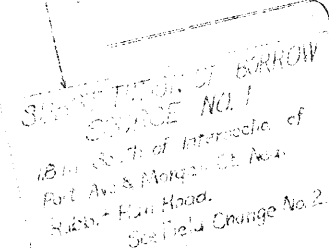 SUBSTITUTION OF BORROW
SOURCE NO. 1
South of Intersection of
Port Ave & Morgan
Road.
See Field Change No. 2.